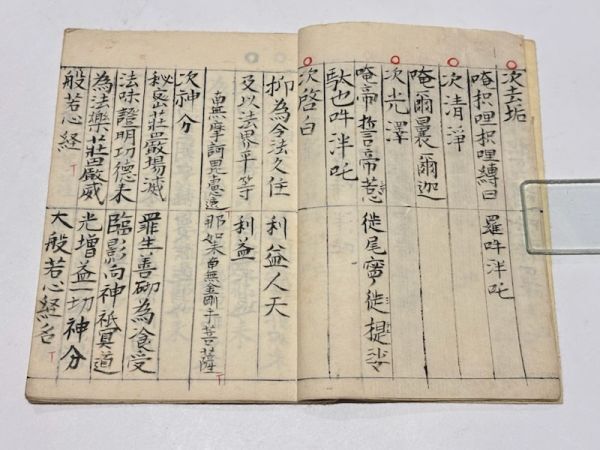 次去垢
唵枳哩枳哩縛曰羅吽泮吒
次清淨
唵爾曩爾迦
次光澤
唵帝誓帝惹徙尾寧徙提娑
馱也吽泮吒
次啓白
抑為令法久住利益人天
及以法界平等利益
南無摩訶毘盧遮那如来南無金剛手菩薩
次神分
秘密荘嚴場滅罪生善砌為飡受
法味證明功德来臨影向神祇冥道
為法樂荘嚴威光增益一切神分
般若心経大般若心経名